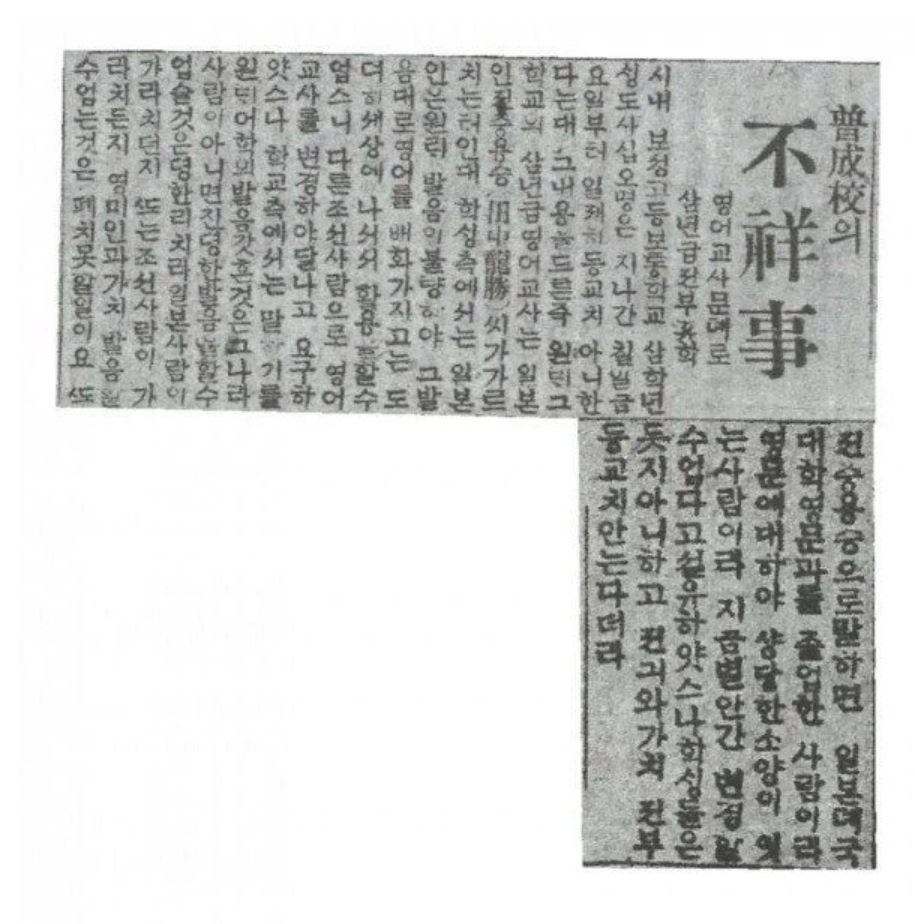 普成校의
不祥事
영어교사문뎨로
삼년급전부퇴학
시내 보성고등보통학교 삼학년
성도사십오명은 지나간 칠일금
요일부터 일졔히등교치 아니한
다는대 그내용을드른즉 원린그
학교의 삼년급영어교사는 일본
인뎐중용승(田中龍勝)씨가가르
치는터인대 학생측에서는 일본
안은원린 발음이불량하야 그발
음대로영어를 배화가지고는 도
뎌히세상에 나서서 활용을할수
업스니 다른조선사람으로 영어
교사를 변경하야달나고 요구하
얏스나 학교측에서는 말하기를
원린어학의발음갓흔것은그나라
사람이아니면진뎡한발음을할수
업슬것은뎡한리치라일본사람이
가라치던지 또는조선사람이 가
라치든지 영미인과가치 발음할
수업는것은 폐치못할일이요 또
뎐중용승으로말하면 일본뎨국
대학영문과를 졸업한 사람이라
영문에대하야 상당한소양이 잇
는사람이라 지금별안간 변경할
수업다고설유하얏스나학생들은
듯지아니하고 뎐긔와가치 전부
등교치안는다더라